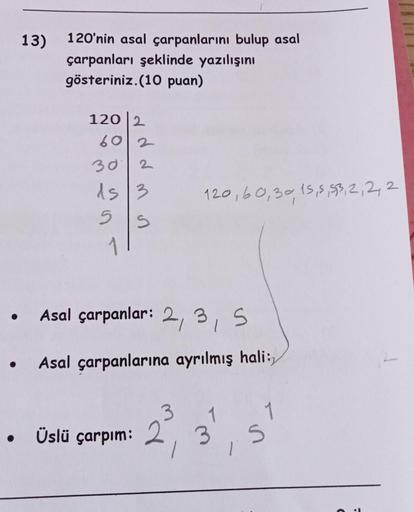 13) 120'nin asal çarpanlarını bulup asal
çarpanları şeklinde yazılışını
gösteriniz.(10 puan)
120 | 2
60 | 2
30 | 2
15 | 3
5 | 5
1
120, 60, 30, 15, 5, 5, 3, 2, 2, 2
• Asal çarpanlar: 2, 3, 5
• Asal çarpanlarına ayrılmış hali:
• Üslü çarpım: 2³, 3¹, 5¹